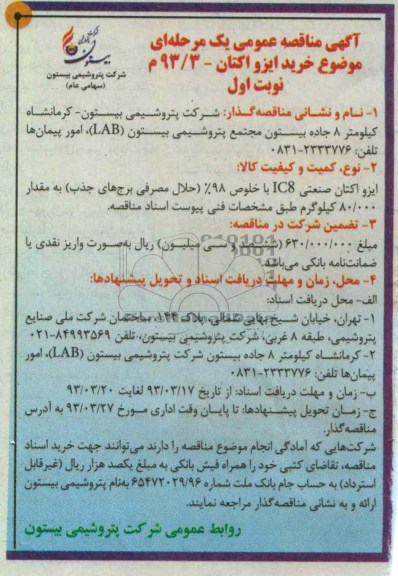 آگهی مناقصه عمومی یک مرحله‌ای
موضوع خرید ایزو اکتان - ۹۳/۳ م
نوبت اول
شرکت پتروشیمی بیستون
(سهامی عام)
۱- نام و نشانی مناقصه‌گذار: شرکت پتروشیمی بیستون- کرمانشاه
کیلومتر ۸ جاده بیستون مجتمع پتروشیمی بیستون (LAB)، امور پیمان‌ها
تلفن: ۲۳۳۳۷۷۶-۰۸۳۱
۲- نوع، کمیت و کیفیت کالا:
ایزو اکتان صنعتی IC8 با خلوص ۹۸٪ (حلال مصرفی برج‌های جذب) به مقدار
۸۰/۰۰۰ کیلوگرم طبق مشخصات فنی پیوست اسناد مناقصه.
۳- تضمین شرکت در مناقصه:
مبلغ ۶۳۰/۰۰۰/۰۰۰ (ششصد و سی میلیون) ریال به‌صورت واریز نقدی یا
ضمانت‌نامه بانکی می‌باشد.
۴- محل، زمان و مهلت دریافت اسناد و تحویل پیشنهادها:
الف- محل دریافت اسناد:
۱- تهران، خیابان شیخ بهایی شمالی، پلاک ۱۴۴، ساختمان شرکت ملی صنایع
پتروشیمی، طبقه ۸ غربی، شرکت پتروشیمی بیستون، تلفن ۸۴۹۹۳۵۶۹-۰۲۱
۲- کرمانشاه کیلومتر ۸ جاده بیستون شرکت پتروشیمی بیستون (LAB)، امور
پیمان‌ها تلفن: ۲۳۳۳۷۷۶-۰۸۳۱
ب- زمان و مهلت دریافت اسناد: از تاریخ ۹۳/۰۳/۱۷ لغایت ۹۳/۰۳/۲۰
ج- زمان تحویل پیشنهادها: تا پایان وقت اداری مورخ ۹۳/۰۳/۲۷ به آدرس
مناقصه‌گذار.
شرکت‌هایی که آمادگی انجام موضوع مناقصه را دارند می‌توانند جهت خرید اسناد
مناقصه، تقاضای کتبی خود را همراه فیش بانکی به مبلغ یکصد هزار ریال (غیرقابل
استرداد) به حساب جام بانک ملت شماره ۶۵۴۷۲۰۲۹/۹۶ به‌نام پتروشیمی بیستون
ارائه و به نشانی مناقصه‌گذار مراجعه نمایند.
روابط عمومی شرکت پتروشیمی بیستون